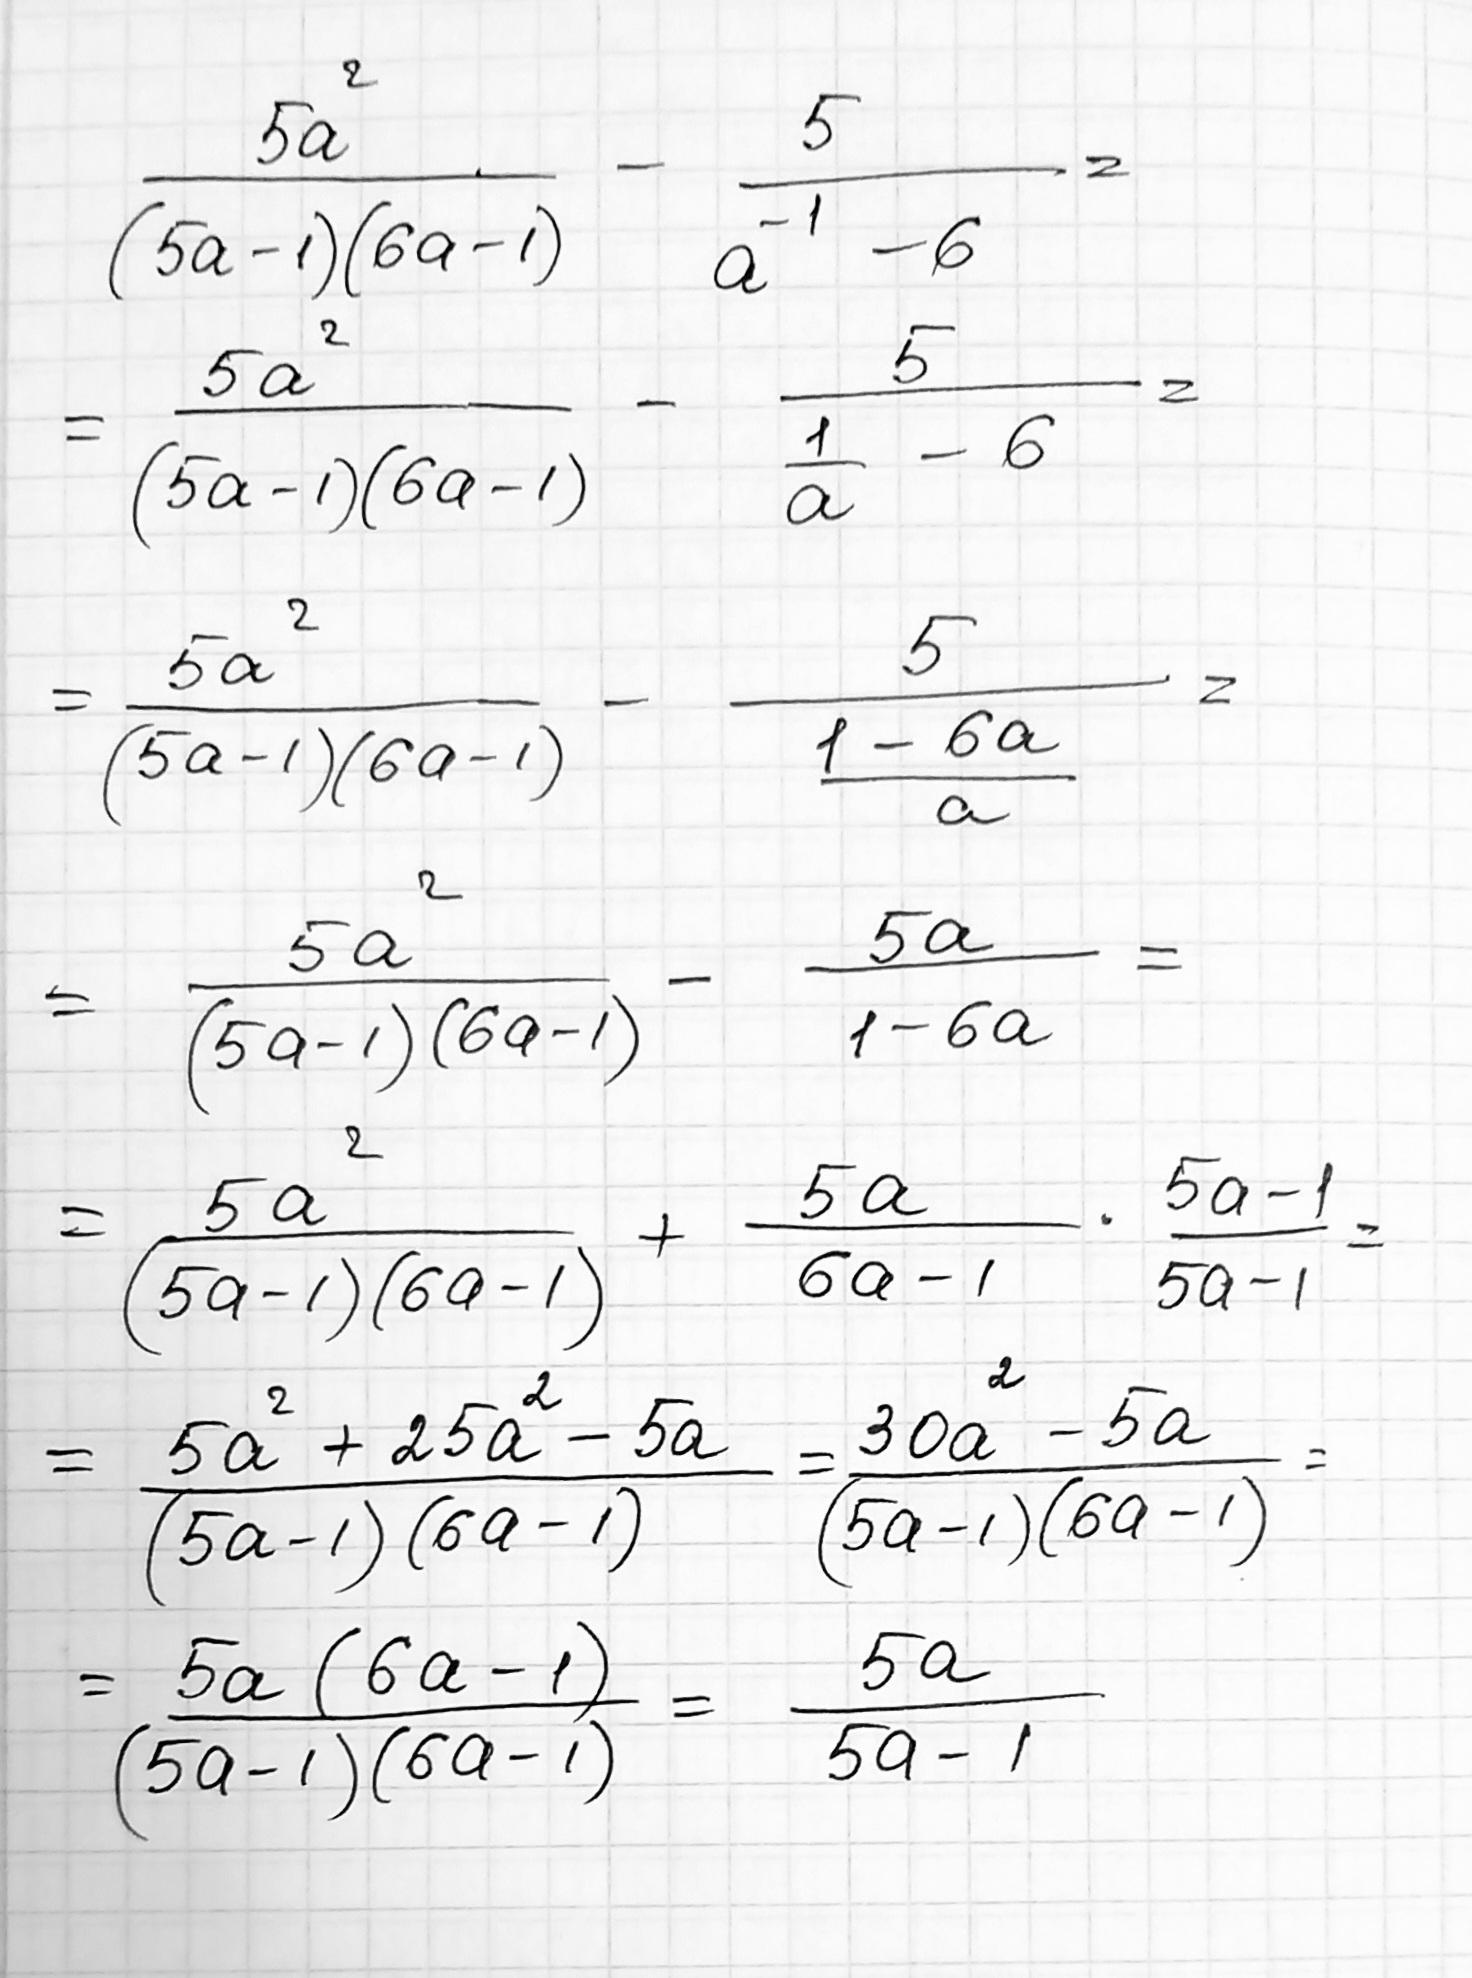 5a²/((5a-1)(6a-1)) - 5/(a⁻¹ - 6) =
= 5a²/((5a-1)(6a-1)) - 5/(1/a - 6) =
= 5a²/((5a-1)(6a-1)) - 5/((1-6a)/a) =
= 5a²/((5a-1)(6a-1)) - 5a/(1-6a) =
= 5a²/((5a-1)(6a-1)) + 5a/(6a-1) · (5a-1)/(5a-1) =
= (5a² + 25a² - 5a)/((5a-1)(6a-1)) = (30a² - 5a)/((5a-1)(6a-1)) =
= 5a(6a-1)/((5a-1)(6a-1)) = 5a/(5a-1)